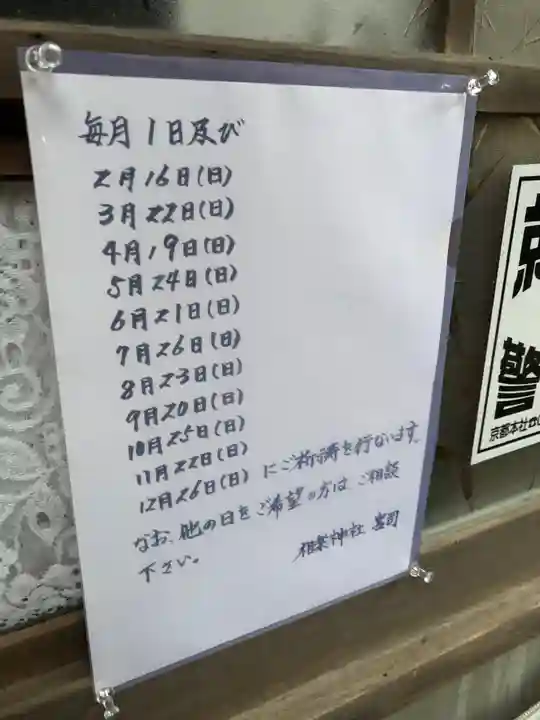 毎月1日及び
2月16日(日)
3月22日(日)
4月19日(日)
5月24日(日)
6月21日(日)
7月26日(日)
8月23日(日)
9月20日(日)
10月25日(日)
11月22日(日)
12月26日(日)にご祈祷を行ないます。
なお、他の日をご希望の方はご相談
下さい。
相楽神社 宮司
警
京都本社